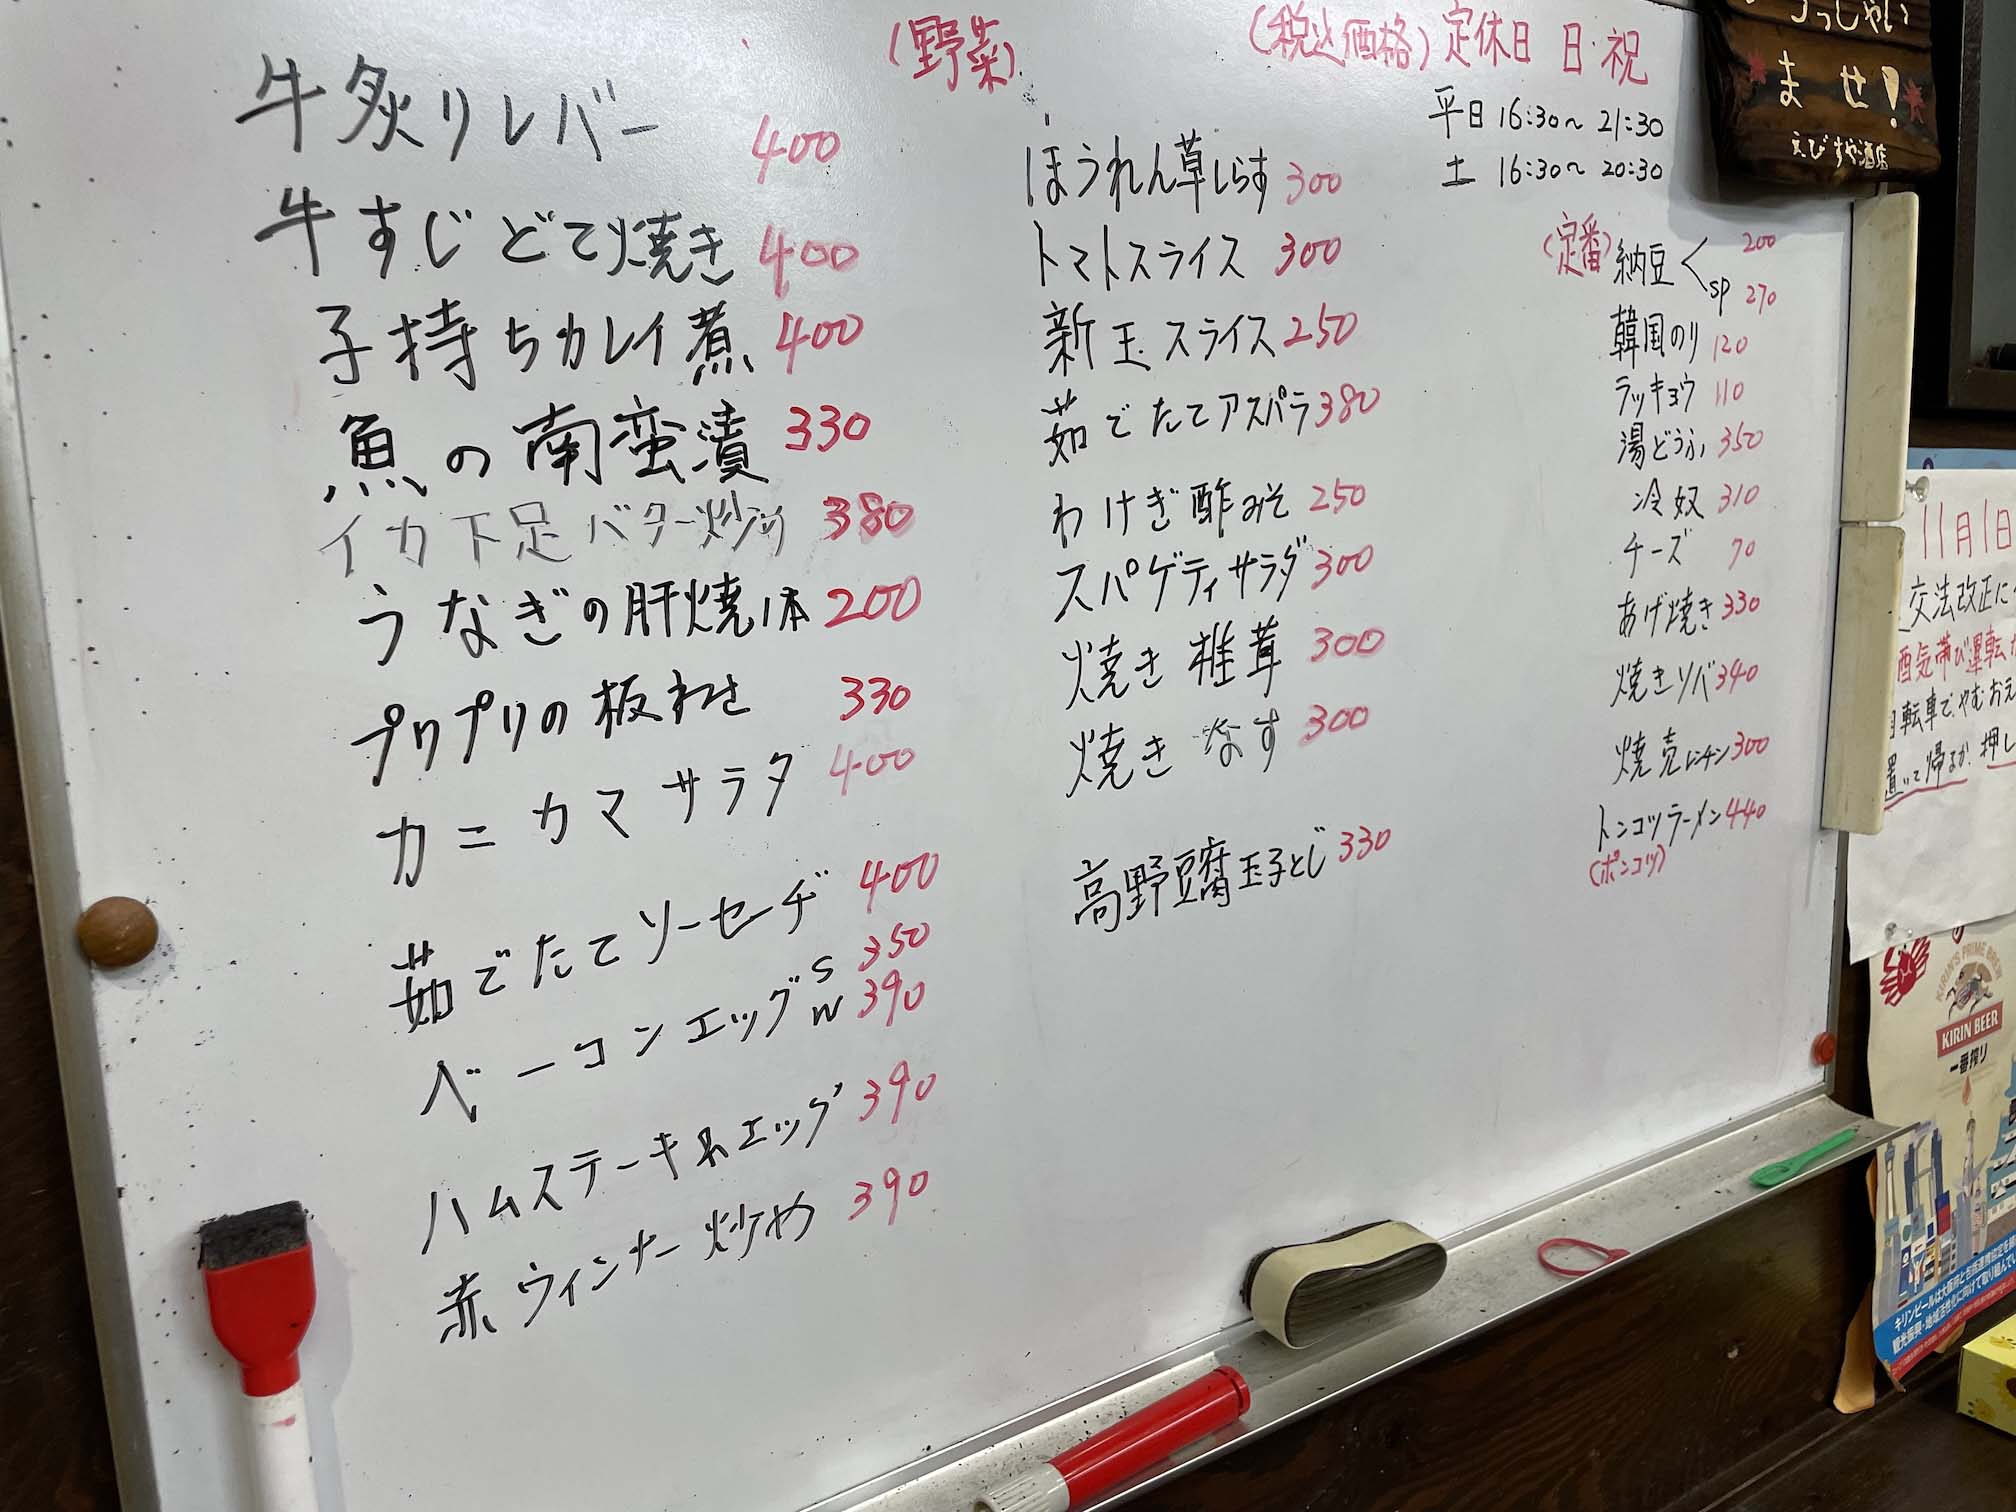 牛炙りレバー 400
牛すじどて焼き 400
子持ちカレイ煮 400
魚の南蛮漬 330
イカ下足バター炒め 380
うなぎの肝焼1本 200
プリプリの板わさ 330
カニカマサラダ 400
茹でたてソーセーヂ 400
ベーコンエッグ S 350
W 390
ハムステーキ&エッグ 390
赤ウィンナー炒め 390
(野菜)
ほうれん草しらす 300
トマトスライス 300
新玉スライス 250
茹でたてアスパラ 380
わけぎ酢みそ 250
スパゲティサラダ 300
焼き椎茸 300
焼きなす 300
高野豆腐玉子とじ 330
(税込価格) 定休日 日・祝
平日 16:30~21:30
土 16:30~20:30
(定番) 納豆 200
sp 270
韓国のり 120
ラッキョウ 110
湯どうふ 350
冷奴 310
チーズ 70
あげ焼き 330
焼きソバ 340
焼売レンチン 300
トンコツラーメン 440
(ポンコツ)
っしゃい
ませ!
えびすや酒店
11月1日
交法改正に
酒気帯び運転
転車で、やむおえ
置いて帰るか、押し
KIRIN'S PRIME BREW
KIRIN BEER
一番搾り
キリンビールは大阪府と包括連携協定を結
観光振興・地域活性化に向けて取り組んでい